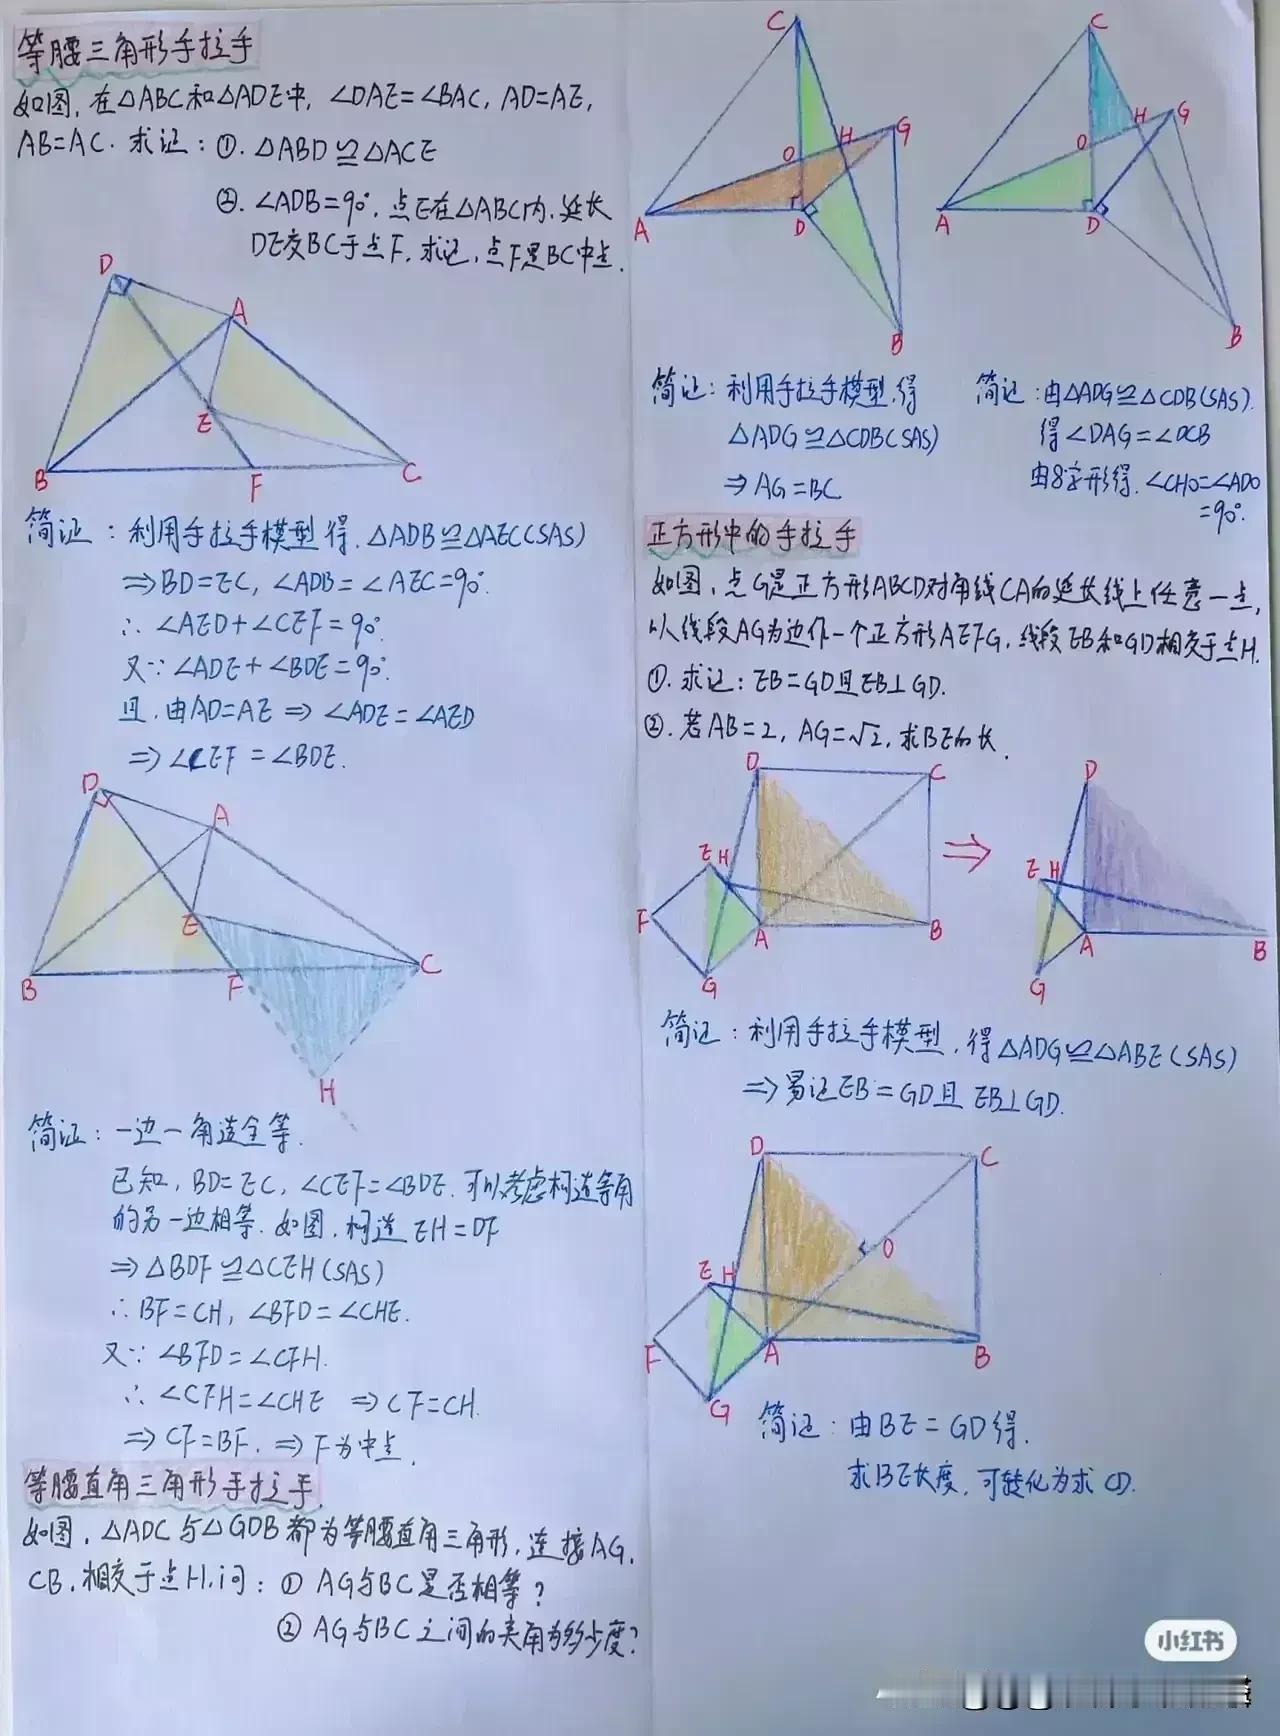 等腰三角形手拉手
如图,在△ABC和△ADE中,∠DAE=∠BAC,AD=AE,
AB=AC.求证:①.△ABD≌△ACE
②.∠ADB=90°,点E在△ABC内,延长
DE交BC于点F,求证,点F是BC中点.
D
A
E
B
F
C
简证:利用手拉手模型得,△ADB≌△AEC(SAS)
⇒BD=EC,∠ADB=∠AEC=90°.
∴∠AED+∠CEF=90°.
又∵∠ADE+∠BDE=90°.
且,由AD=AE⇒∠ADE=∠AED
⇒∠CEF=∠BDE.
D
A
E
B
F
C
H
简证:一边一角造全等.
已知,BD=EC,∠CEF=∠BDE.可以考虑构造等角
的另一边相等.如图,构造EH=DF
⇒△BDF≌△CEH(SAS)
∴BF=CH,∠BFD=∠CHE.
又∵∠BFD=∠CFH.
∴∠CFH=∠CHE ⇒CF=CH.
⇒CF=BF.⇒F为中点.
等腰直角三角形手拉手.
如图,△ADC与△GDB都为等腰直角三角形,连接AG,
CB,相交于点H,问:①AG与BC是否相等?
②AG与BC之间的夹角为多少度?
C
H
G
O
A
D
B
C
H
G
O
A
D
B
简证:利用手拉手模型,得
△ADG≌△CDB(SAS)
⇒AG=BC
简证:由△ADG≌△CDB(SAS).
得∠DAG=∠DCB
由8字形得,∠CHO=∠ADO
=90°.
正方形中的手拉手
如图,点G是正方形ABCD对角线CA的延长线上任意一点,
以线段AG为边作一个正方形AEFG,线段EB和GD相交于点H.
①.求证:EB=GD且EB⊥GD.
②.若AB=2,AG=√2,求BE的长.
D
C
E
H
F
A
B
G
⇒
D
E
H
A
B
G
简证:利用手拉手模型,得△ADG≌△ABE(SAS)
⇒易证EB=GD且EB⊥GD.
D
C
O
E
H
F
A
B
G
简证:由BE=GD得.
求BE长度,可转化为求GD.
小红书